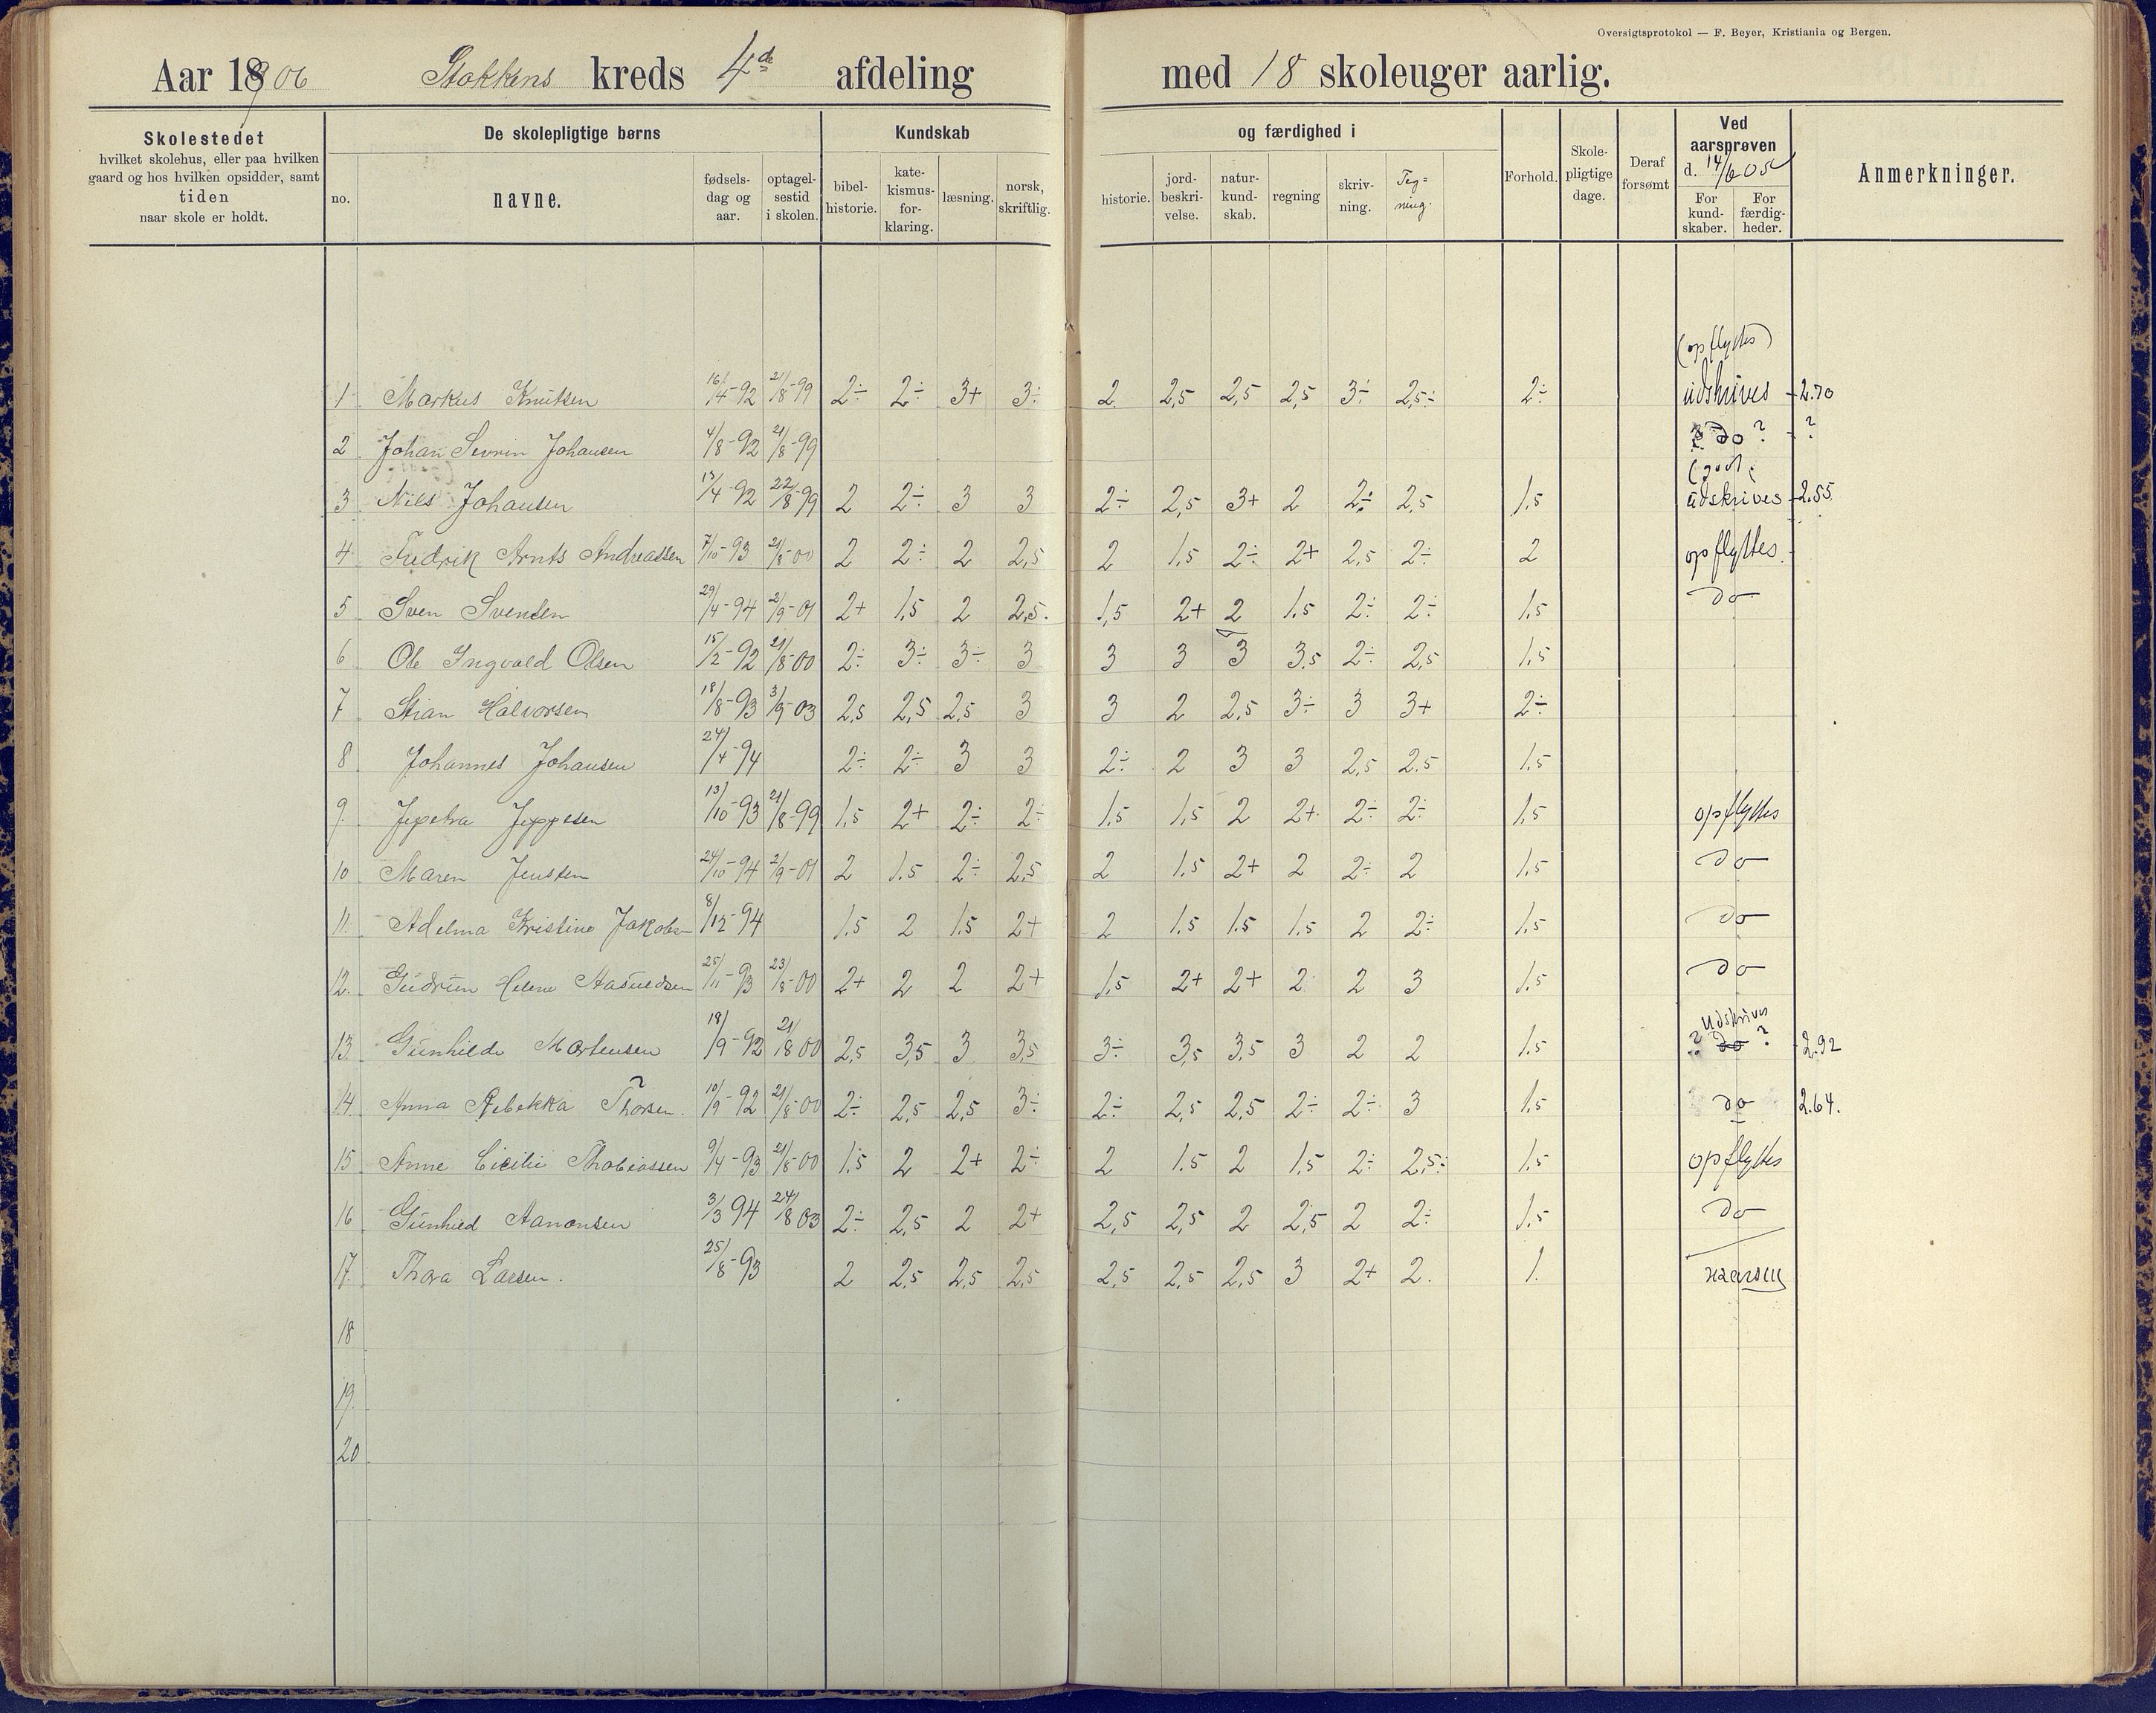 Oversigtsprotokol — F. Beyer, Kristiania og Bergen.
Aar 1906 Stokkens kreds 4de afdeling med 18 skoleuger aarlig.
Skolestedet
hvilket skolehus, eller paa hvilken
gaard og hos hvilken opsidder, samt
tiden
naar skole er holdt.
De skolepligtige børns
no. navne. fødsels-dag og aar. optagel-sestid i skolen.
Kundskab og færdighed i
bibel-historie. kate-kismus-for-klaring. læsning. norsk, skriftlig. historie. jord-beskri-velse. natur-kund-skab. regning skriv-ning. Teg=ning.
Forhold. Skole-pligtige dage. Deraf forsømt
Ved aarsprøven d. 14/6 05
For kund-skaber. For færdig-heder.
Anmerkninger.
(opflyttes)
1 Markus Knutsen 16/4-92 21/8-99 2÷ 2÷ 3+ 3÷ 2 2,5 2,5 2,5 3÷ 2,5÷ 2÷ udskrives 2.70
2 Johan Sevrin Johansen 4/8-92 21/8-99 do ? ?
(godt
3 Nils Johansen 13/4-92 22/8-99 2 2÷ 3 3 2÷ 2,5 3+ 2 2÷ 2,5 1,5 udskrives 2.55
4 Fredrik Arnts Andreassen 7/10-93 21/8-00 2 2÷ 2 2,5 2 1,5 2÷ 2+ 2,5 2÷ 2 opflyttes
5 Sven Svensen 29/4-94 2/9-01 2+ 1,5 2 2,5. 1,5 2+ 2 1.5 2÷ 2÷ 1.5 do
6 Ole Ingvald Olsen 15/2-92 21/8-00 2÷ 3÷ 3÷ 3 3 3 3 3,5 2÷ 2,5 1.5
7 Stian Halvorsen 18/8-93 3/9-03 2,5 2,5 2,5 3 3 2 2,5 3÷ 3 3+ 2÷
8 Johannes Johansen 24/4-94 2÷ 2÷ 3 3 2÷ 2 3 3 2,5 2.5 1.5
9. Jepetra Jeppesen 13/10-93 21/8-99 1,5 2+ 2÷ 2÷ 1.5 1.5 2 2+ 2÷ 2÷ 1.5 opflyttes
10 Maren Jensen 24/10-94 2/9-01 2 1.5 2÷ 2,5 2 1.5 2+ 2 2÷ 2 1.5 do
11. Adelma Kristine Jakobsen 8/12-94 1.5 2 1.5 2+ 2 1.5 1.5 1.5 2 2÷ 1.5 do
12. Gudrun Helene Aasuldsen 25/11-93 23/8-00 2+ 2 2 2+ 1.5 2+ 2+ 2 2 3 1.5 do
Udskrives
13. Gunhilde Mortensen 18/9-92 21/8 00 2,5 3,5 3 3,5 3÷ 3,5 3,5 3 2 2 1.5 ? do ? 2.92
14. Anna Rebekka Thorsen. 10/9-92 21/8-00 2÷ 2,5 2,5 3÷ 2÷ 2,5 2,5 2÷ 2÷ 3 1.5 do 2.64.
15 Anne Cicilie Thobiassen 9/4-93 21/8-00 1.5 2 2+ 2÷ 2 1.5 2 1.5 2÷ 2,5÷ 1.5 opflyttes
16 Gunhild Aanonsen 3/3 94 24/8 03 2÷ 2,5 2 2+ 2,5 2,5 2 2,5 2 2÷ 1.5 do
17. Thora Larsen. 25/8-93 2 2,5 2,5 2,5 2,5 2,5 2,5 3 2+ 2. 1.
18
19.
20